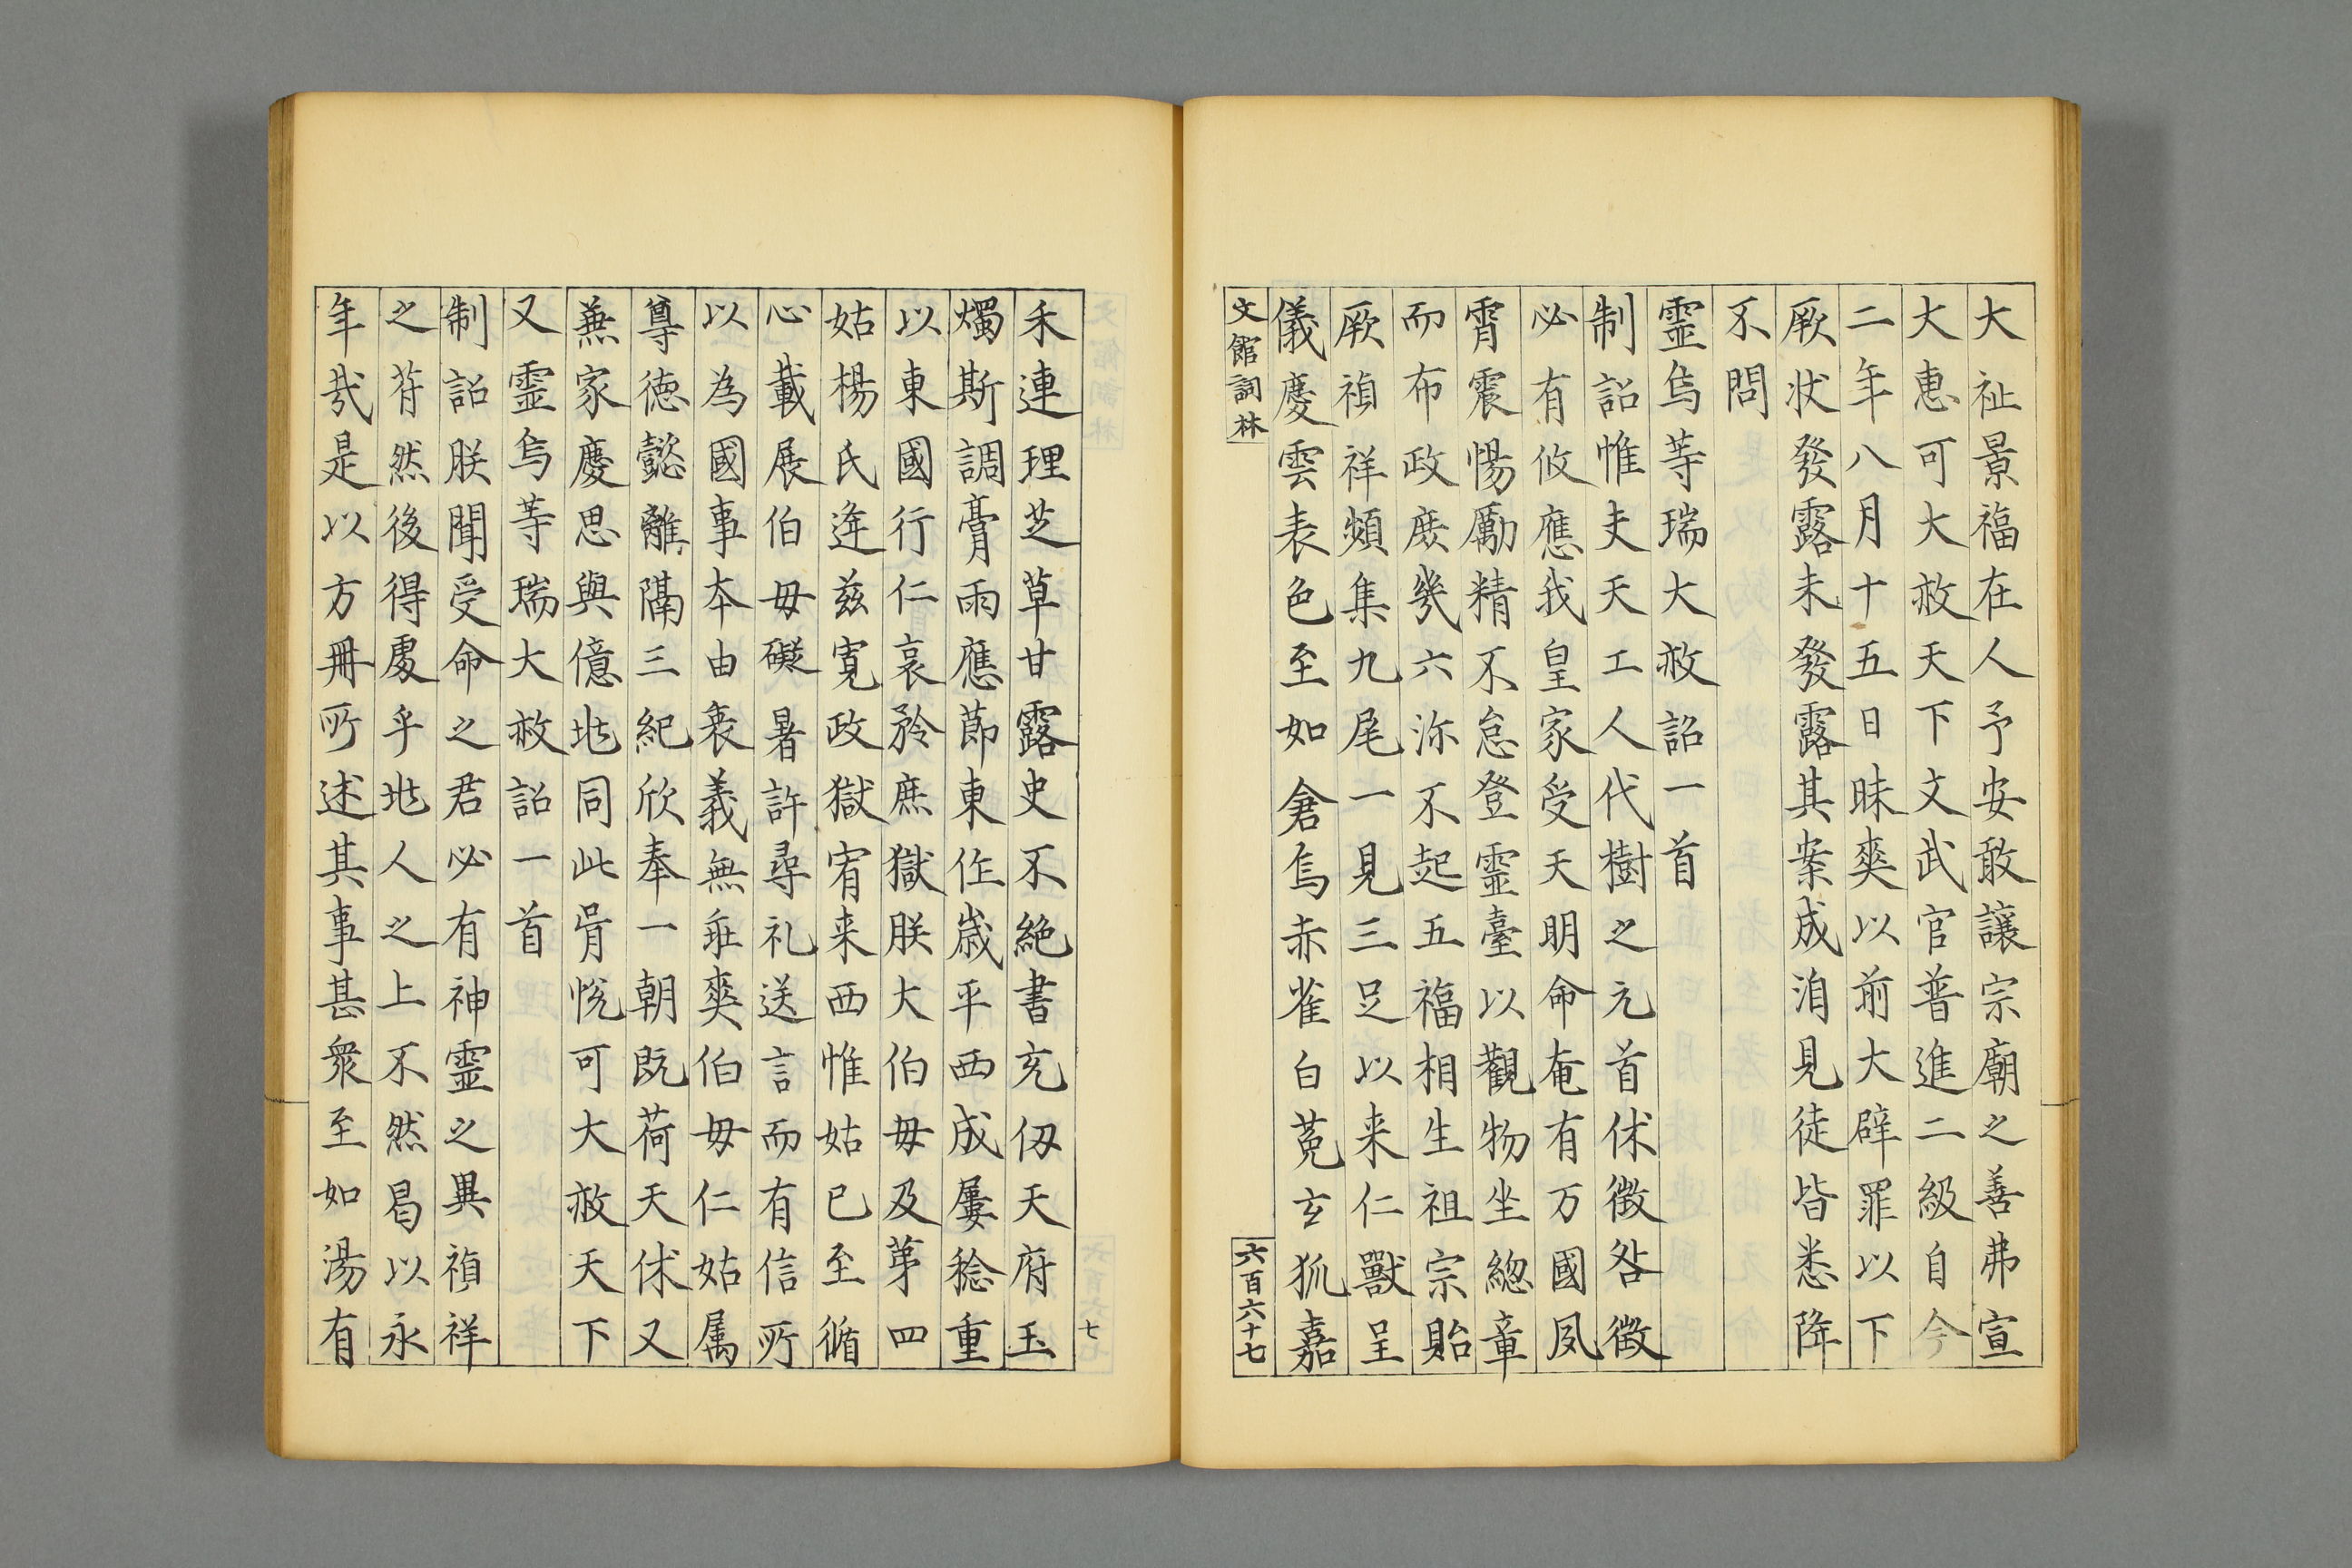 大祉景福在人予安敢讓宗廟之善弗宣
大惠可大赦天下文武官普進二級自今
二年八月十五日昧爽以前大辟罪以下
厥状發露未發露其案成洎見徒皆悉降
不問
霊烏等瑞大赦詔一首
制詔惟夫天工人代樹之元首休徴咎徴
必有攸應我皇家受天明命奄有万國夙
霄震惕勵精不怠登霊臺以觀物坐總章
而布政庶幾六沵不起五福相生祖宗貽
厥禎祥頻集九尾一見三足以来仁獸呈
儀慶雲表色至如倉烏赤雀白菟玄狐嘉
文館詞林
六百六十七
禾連理芝草甘露史不絶書充仭天府玉
燭斯調膏雨應節東作歳平西成屢稔重
以東國行仁哀矜庶獄朕大伯毋及苐四
姑楊氏迮兹寛政獄宥来西惟姑已至循
心載展伯毋礙暑許尋礼送言而有信所
以為國事夲由衷義無乖爽伯毋仁姑属
尊徳懿離隔三紀欣奉一朝既荷天休又
蕪家慶思與億地同此胥悦可大赦天下
又霊烏等瑞大赦詔一首
制詔朕聞受命之君必有神霊之異禎祥
之符然後得處乎地人之上不然曷以永
年哉是以方冊所述其事甚衆至如湯有
七